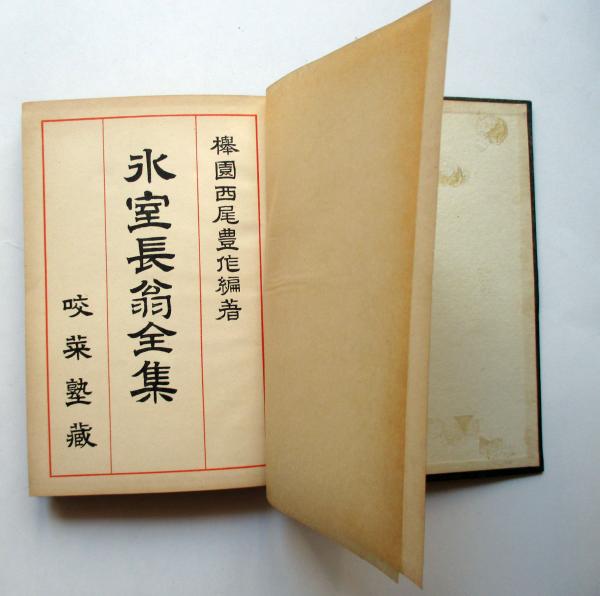 櫸園西尾豊作編著
氷室長翁全集
咬菜塾蔵